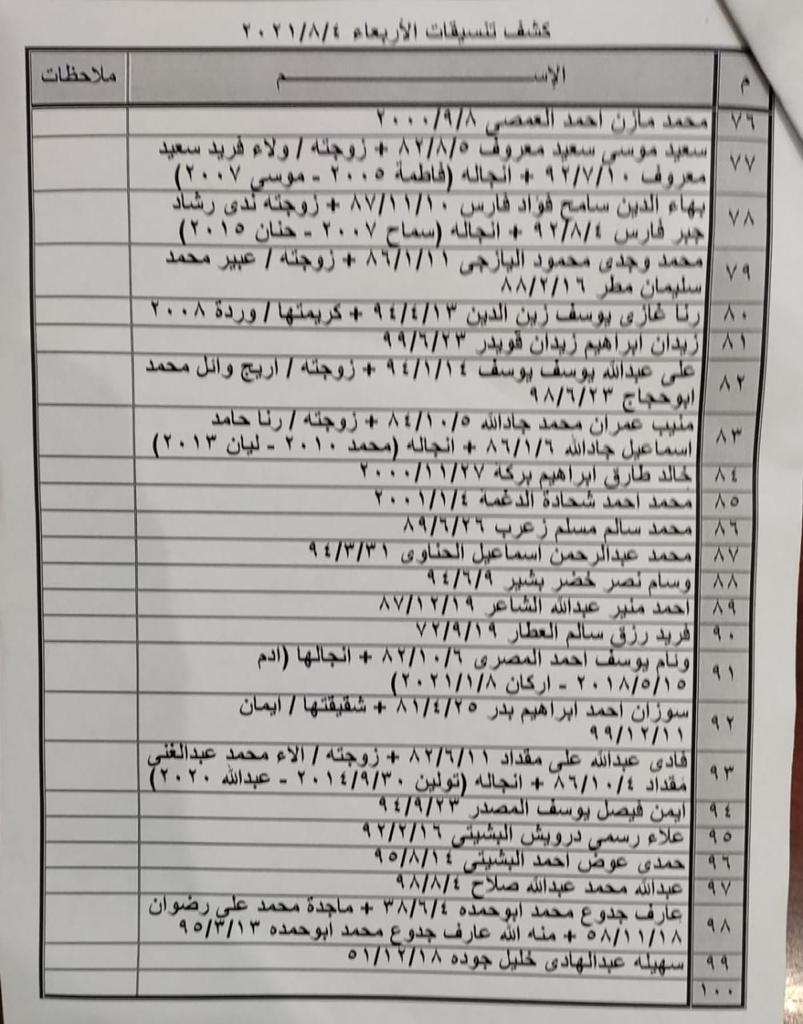 كشف تنسيقات الأربعاء ٢٠٢١/٨/٤
م الإســـــــــم ملاحظات
٧٦ محمد مازن احمد العمصى ٢٠٠٠/٩/٨
٧٧ سعيد موسى سعيد معروف ٨٢/٨/٥ + زوجته / ولاء فريد سعيد
معروف ٩٢/٧/١٠ + انجاله (فاطمة ٢٠٠٥ - موسى ٢٠٠٧)
٧٨ بهاء الدين سامح فؤاد فارس ٨٧/١١/١٠ + زوجته ندى رشاد
جبر فارس ٩٢/٨/٤ + انجاله (سماح ٢٠٠٧ - حنان ٢٠١٥)
٧٩ محمد وجدى محمود اليازجى ٨٦/١/١١ + زوجته / عبير محمد
سليمان مطر ٨٨/٢/١٦
٨٠ رنا غازى يوسف زين الدين ٩٤/٤/١٣ + كريمتها / وردة ٢٠٠٨
٨١ زيدان ابراهيم زيدان قويدر ٩٩/٦/٢٣
٨٢ على عبدالله يوسف يوسف ٩٤/١/١٤ + زوجته / اريج وائل محمد
ابوحجاج ٩٨/٦/٢٣
٨٣ منيب عمران محمد جادالله ٨٤/١٠/٥ + زوجته / رنا حامد
اسماعيل جادالله ٨٦/١/٦ + انجاله (محمد ٢٠١٠ - ليان ٢٠١٣)
٨٤ خالد طارق ابراهيم بركة ٢٠٠٠/١١/٢٧
٨٥ محمد احمد شحادة الدغمة ٢٠٠١/١/٤
٨٦ محمد سالم مسلم زعرب ٨٩/٦/٢٦
٨٧ محمد عبدالرحمن اسماعيل الحناوى ٩٤/٣/٣١
٨٨ وسام نصر خضر بشير ٩٤/٦/٩
٨٩ احمد منير عبدالله الشاعر ٨٧/١٢/١٩
٩٠ فريد رزق سالم العطار ٧٢/٩/١٩
٩١ ونام يوسف احمد المصرى ٨٢/١٠/٦ + انجالها (ادم
٢٠١٨/٥/١٥ - اركان ٢٠٢١/١/٨)
٩٢ سوزان احمد ابراهيم بدر ٨١/٤/٢٥ + شقيقتها / ايمان
٩٩/١٢/١١
٩٣ فادى عبدالله على مقداد ٨٢/٦/١١ + زوجته / الاء محمد عبدالغني
مقداد ٨٦/١٠/٤ + انجاله (تولين ٢٠١٤/٩/٣٠ - عبدالله ٢٠٢٠)
٩٤ ايمن فيصل يوسف المصدر ٩٤/٩/٢٣
٩٥ علاء رسمي درويش البشيتى ٩٢/٢/١٦
٩٦ حمدى عوض احمد البشيتي ٩٥/٨/١٤
٩٧ عبدالله محمد عبدالله صلاح ٩٨/٨/٤
٩٨ عارف جدوع محمد ابوحمده ٣٨/٦/٤ + ماجدة محمد علي رضوان
٥٨/١١/١٨ + منه الله عارف جدوع محمد ابوحمده ٩٥/٣/١٣
٩٩ سهيله عبدالهادى خليل جوده ٥١/١٢/١٨
١٠٠